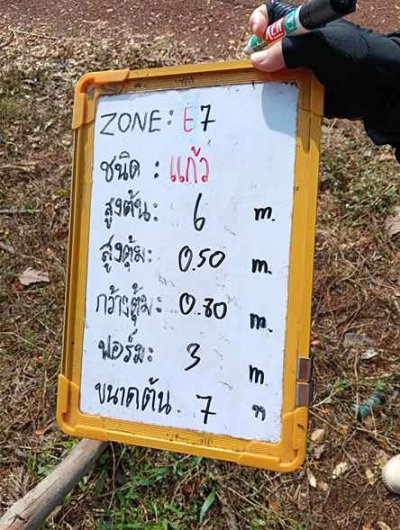 ZONE: E7
ชนิด : แก้ว
สูงต้น: 6 m.
สูงตุ้ม: 0.50 m.
กว้างตุ้ม: 0.80 m.
ฟอร์ม: 3 m
ขนาดต้น. 7 ท